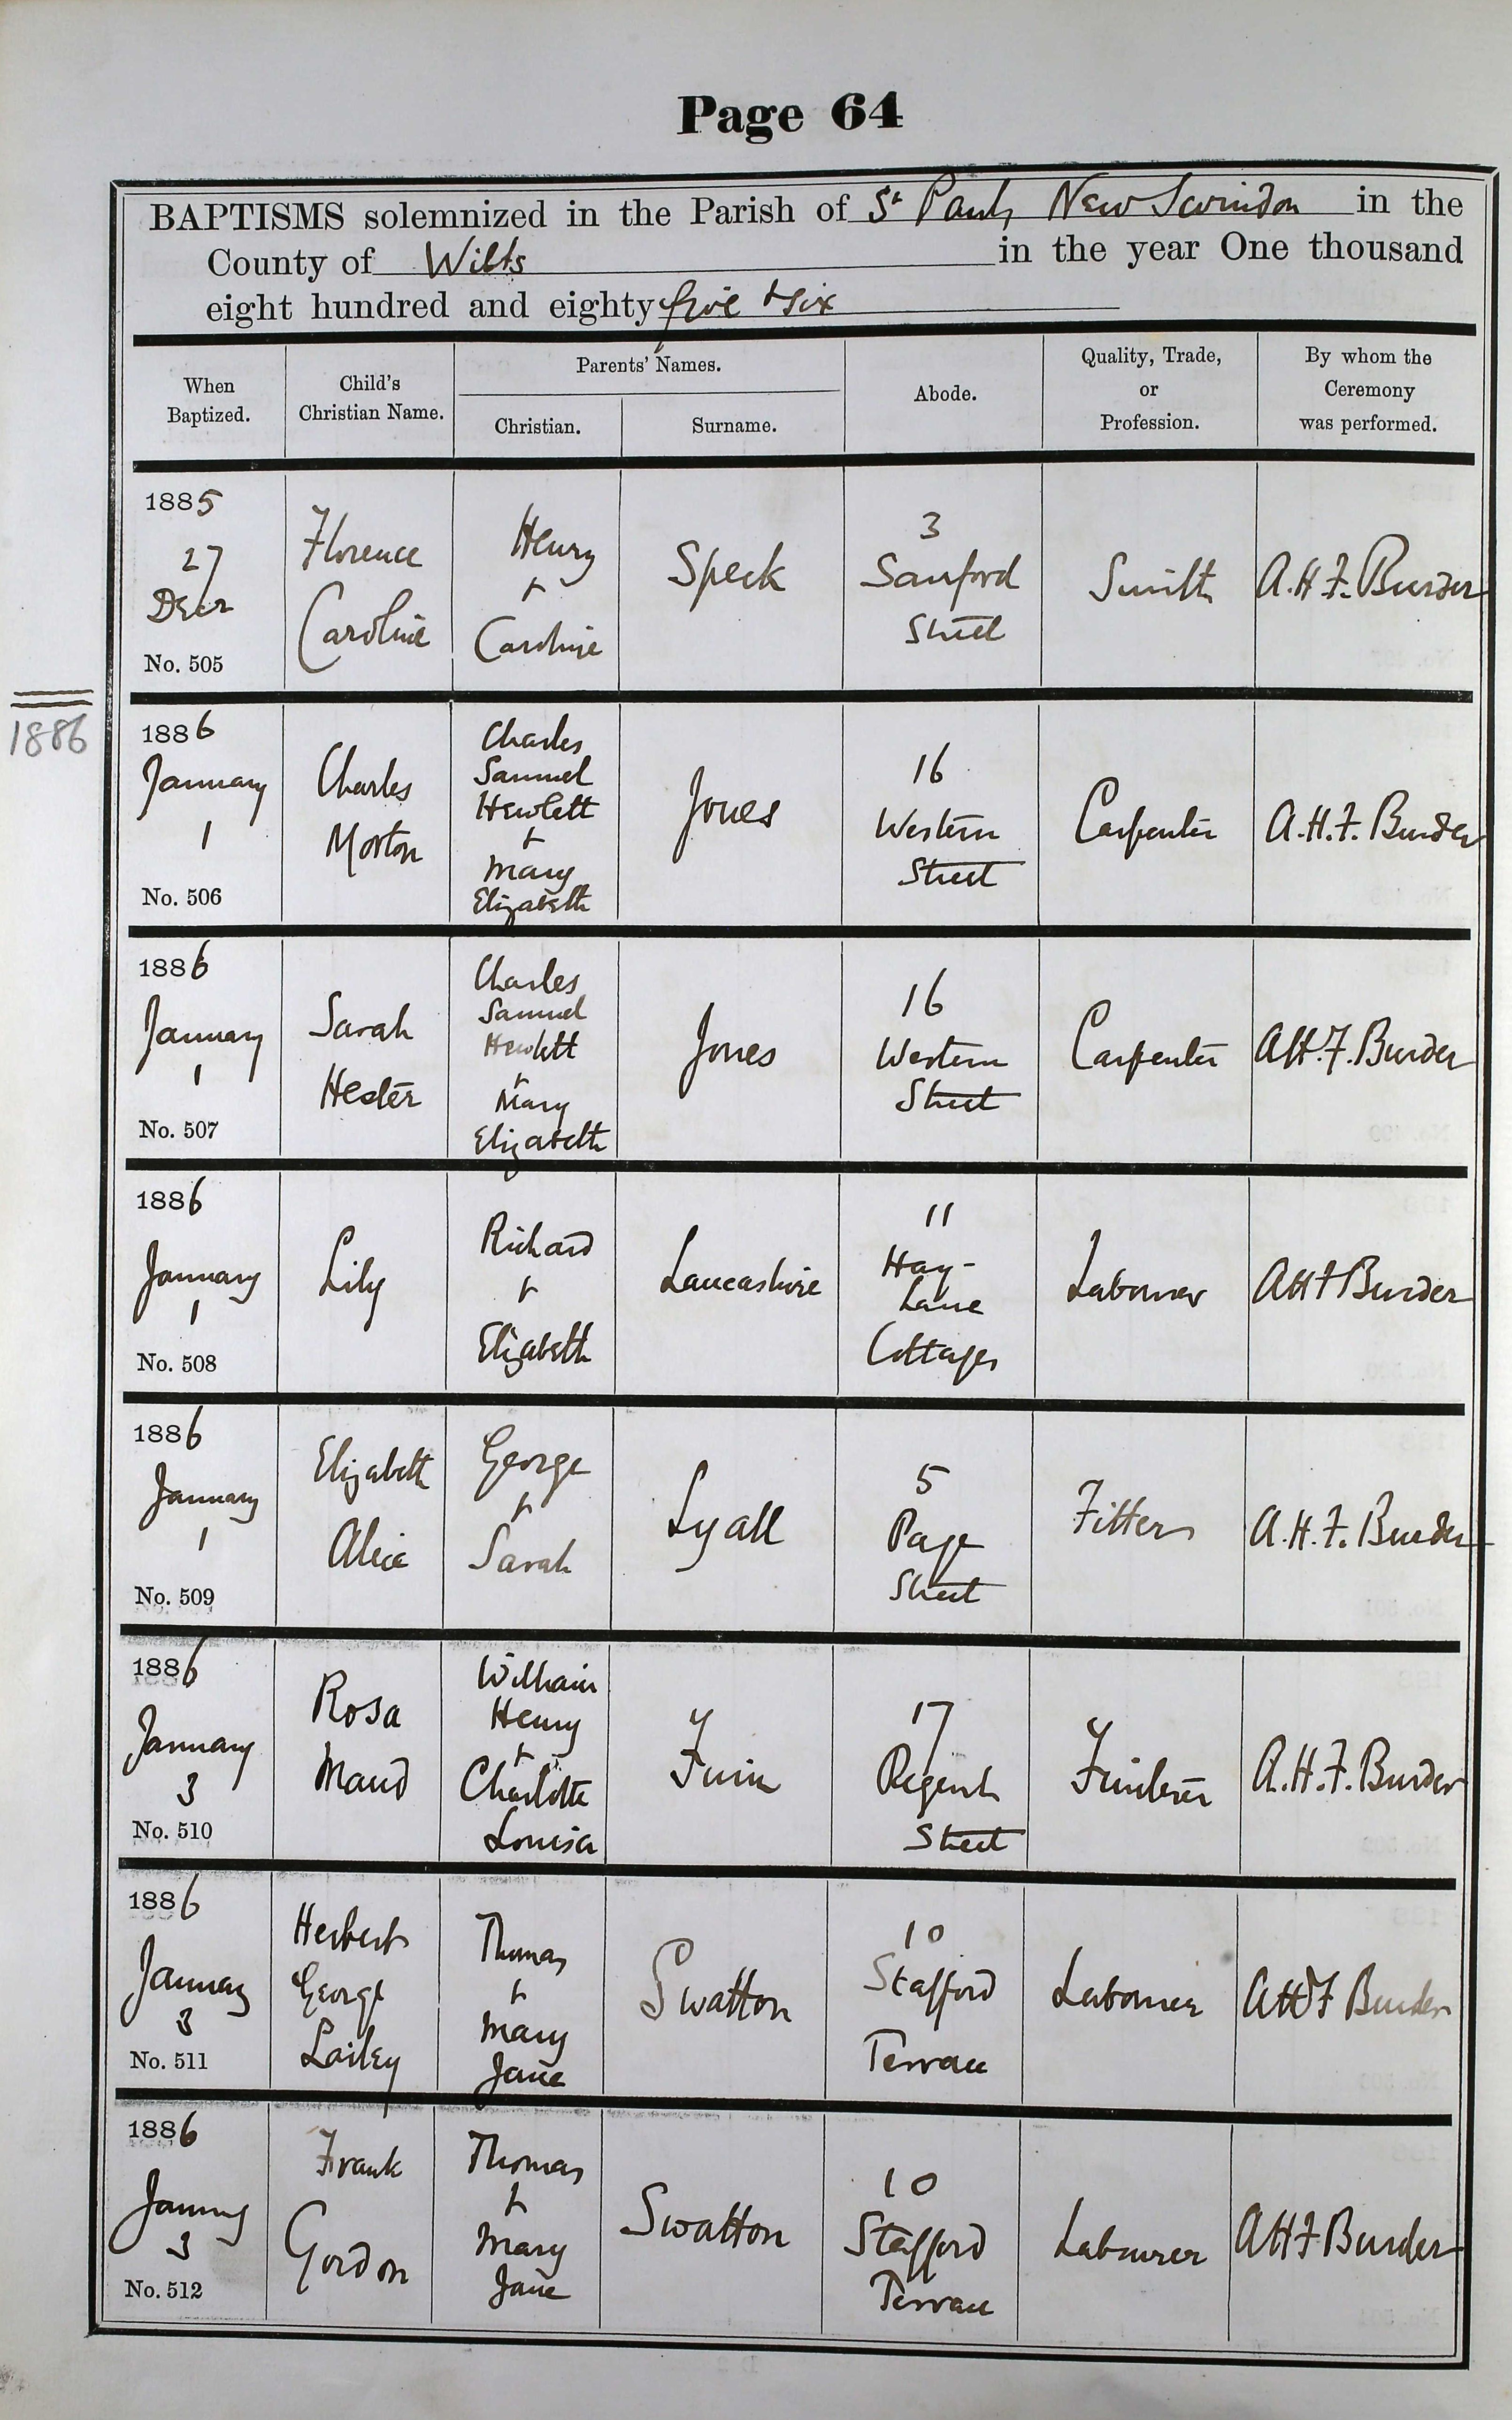 Page 64
BAPTISMS solemnized in the Parish of St Pauls, New Swindon in the
County of Wilts in the year One thousand
eight hundred and eighty five & six
When
Baptized.
Child's
Christian Name.
Parents' Names.
Christian.
Surname.
Abode.
Quality, Trade,
or
Profession.
By whom the
Ceremony
was performed.
1885
27
Decr
No. 505
Florence
Caroline
Henry
+
Caroline
Speck
3
Sanford
Street
Smith
A.H.F. Burder
1886
1886
January
1
No. 506
Charles
Morton
Charles
Samuel
Hewlett
+
Mary
Elizabeth
Jones
16
Western
Street
Carpenter
A.H.F. Burder
1886
January
1
No. 507
Sarah
Hester
Charles
Samuel
Hewlett
+
Mary
Elizabeth
Jones
16
Western
Street
Carpenter
AH.F. Burder
1886
January
1
No. 508
Lily
Richard
+
Elizabeth
Lancashire
11
Hay-
Lane
Cottages
Labourer
AHF Burder
1886
January
1
No. 509
Elizabeth
Alice
George
+
Sarah
Lyall
5
Page
Street
Fitter
A.H.F. Burder
1886
January
3
No. 510
Rosa
Maud
William
Henry
+
Charlotte
Louisa
17
Regent
Street
A.H.F. Burder
1886
January
3
No. 511
Herbert
George
Lailey
Thomas
+
Mary
Jane
Swatton
10
Stafford
Terrace
Labourer
AHF Burder
1886
January
3
No. 512
Frank
Gordon
Thomas
+
Mary
Jane
Swatton
10
Stafford
Terrace
Labourer
AHF Burder